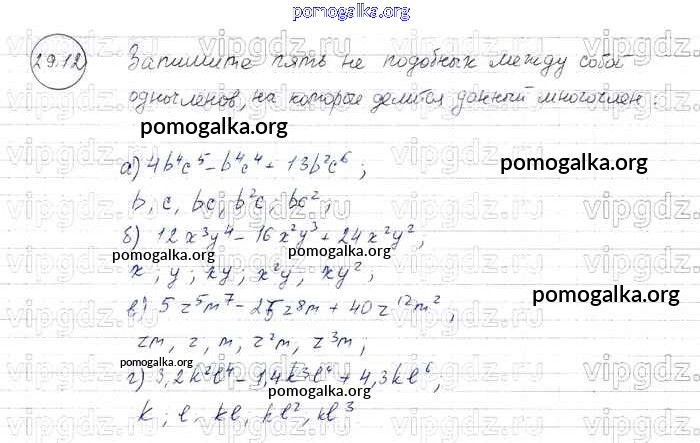 pomogalka.org
29.12 Запишите пять не подобных между собой
одночленов, на которые делится данный многочлен:
pomogalka.org
а) 4b⁴c⁵ - b⁴c⁴ + 13b²c⁶;
pomogalka.org
b, c, bc, b²c, bc²;
б) 12x³y⁴ - 16x²y³ + 24x²y²,
pomogalka.org
x; y; xy; x²y, xy²;
в) 5z⁵m⁷ - 25z⁸m + 40z¹²m²,
pomogalka.org
zm, z, m, z²m, z³m;
pomogalka.org
г) 3,2k²l⁴ - 1,4k³l⁴ + 4,3kl⁶;
pomogalka.org
k; l, kl, kl², kl³
vipgdz.com